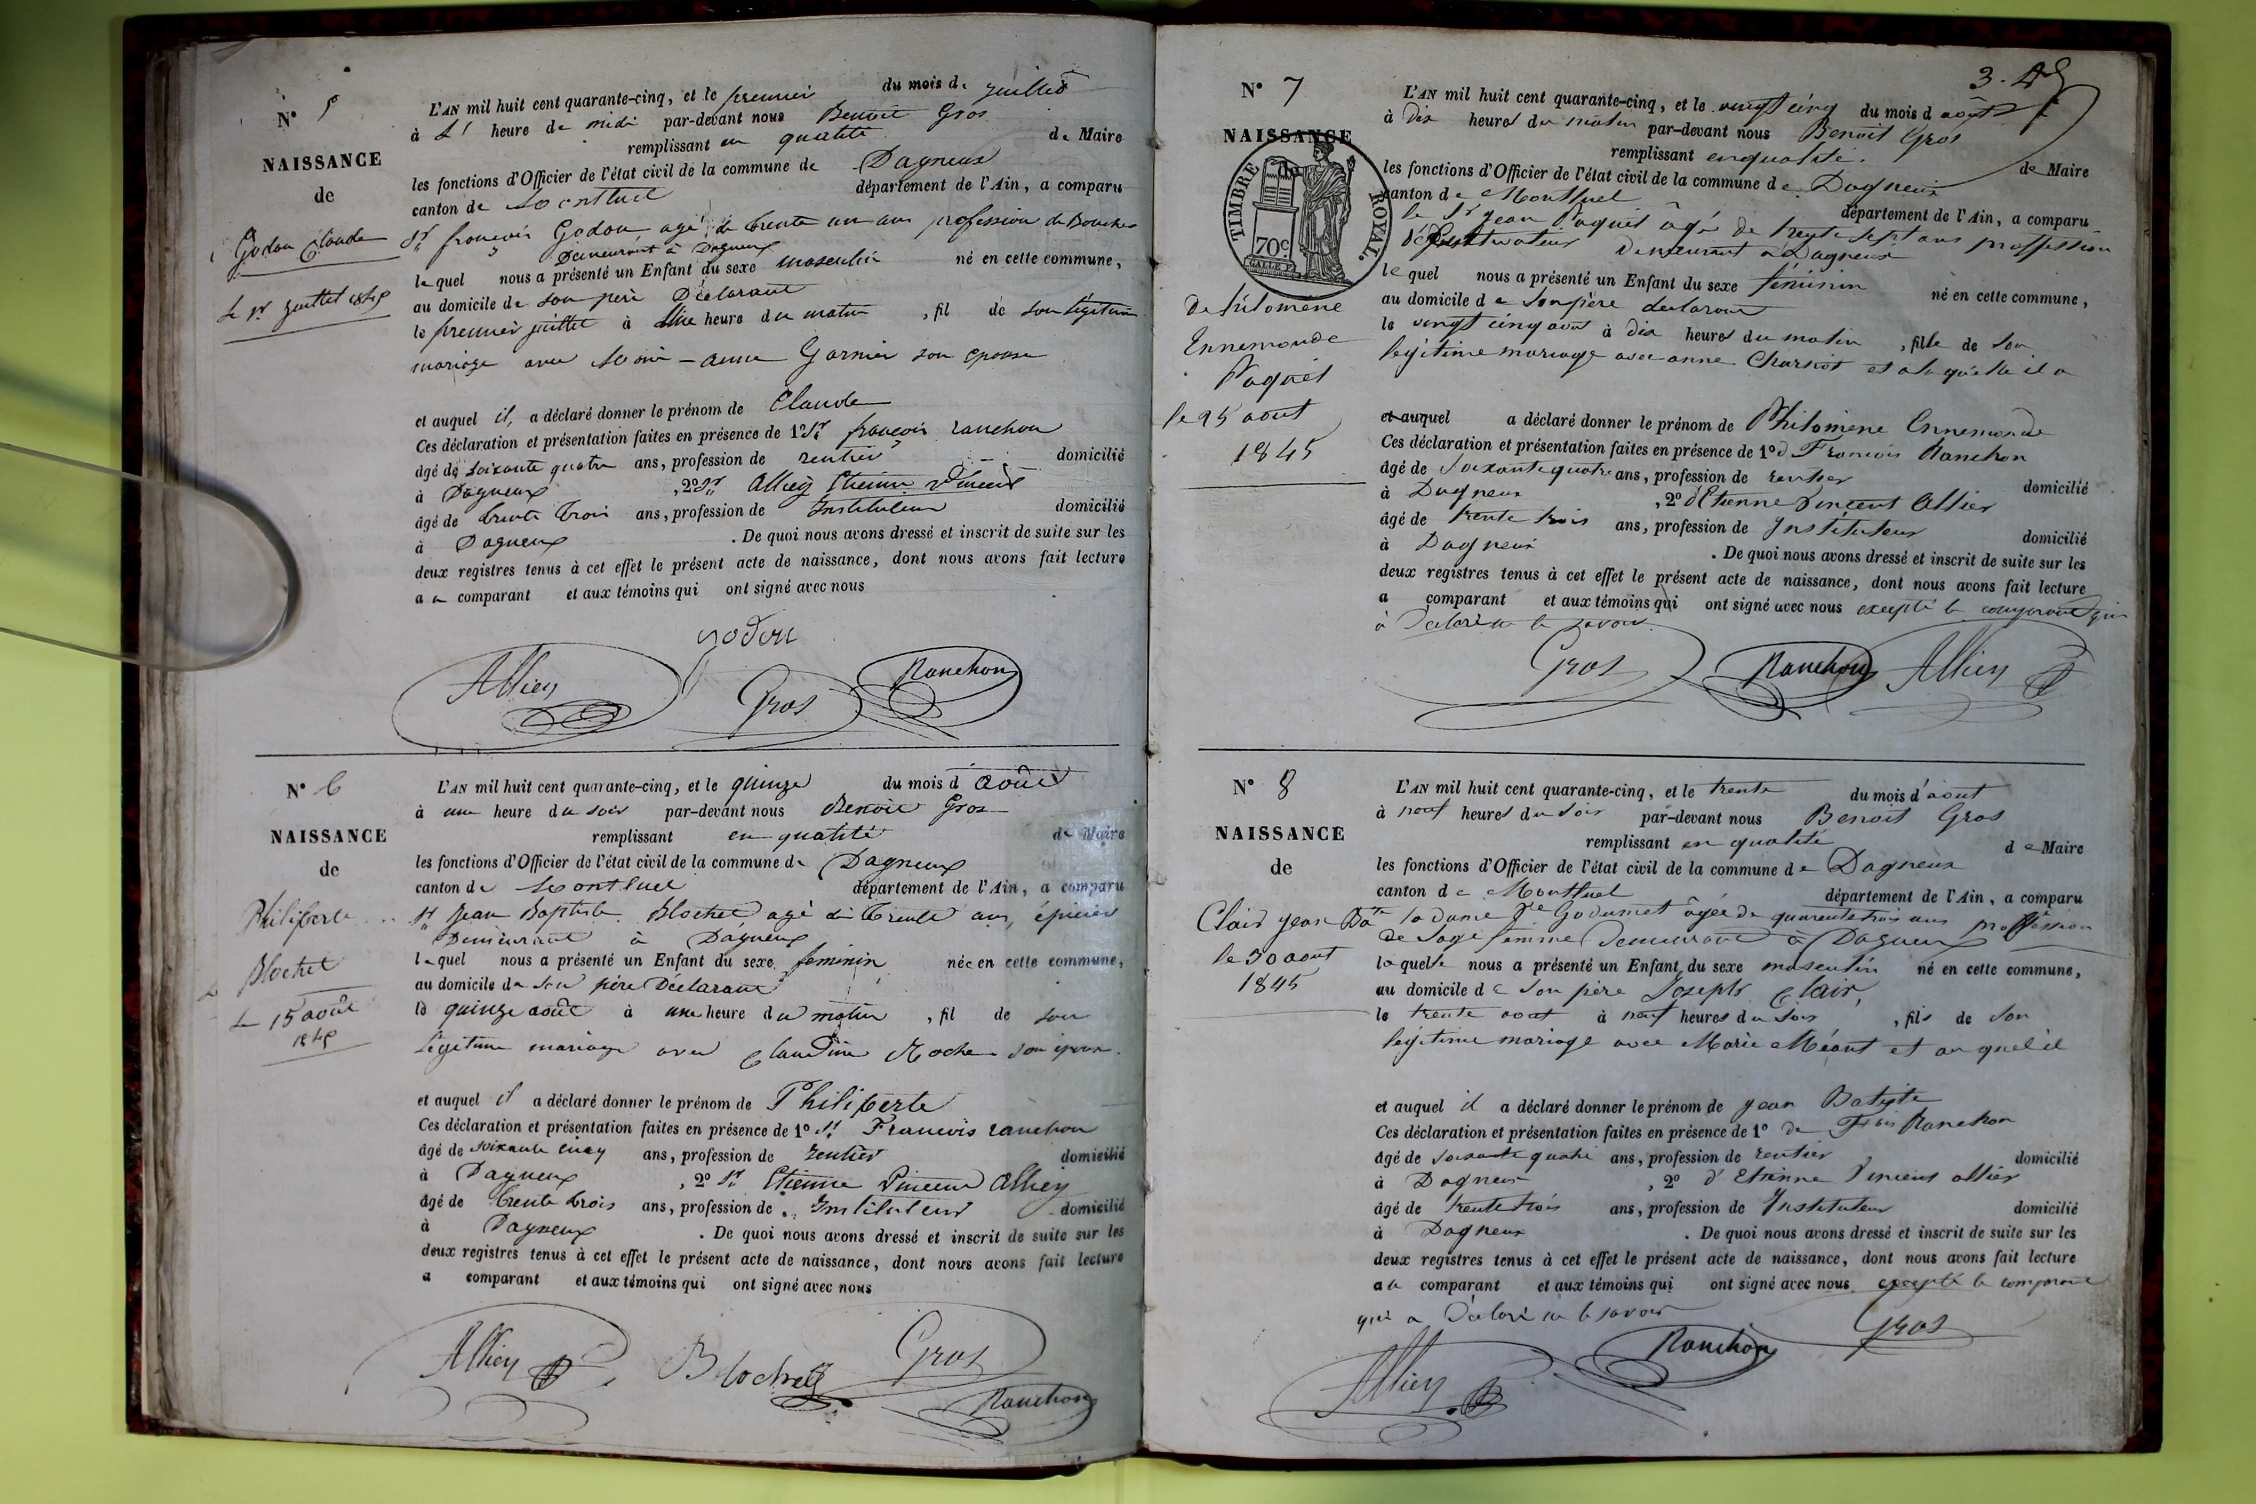 N° 5
NAISSANCE
de
Godon Claude
Le 1er Juillet 1845
L'AN mil huit cent quarante-cinq, et le premier du mois de juillet
à heure de midi par-devant nous Benoit Gros
remplissant en qualité de Maire
les fonctions d'Officier de l'état civil de la commune de Dagneux
canton de Montluel département de l'Ain, a comparu
Sr françois Godon agé de trente un ans profession de Boucher
Demeurant à Dagneux
lequel nous a présenté un Enfant du sexe masculin né en cette commune,
au domicile de son père Déclarant
le premier juillet à Une heure du matin, fil de son légitime
mariage avec anne Garnier son épouse
et auquel il, a déclaré donner le prénom de Claude
Ces déclaration et présentation faites en présence de 1° Sr françois ranchon
âgé de soixante quatre ans, profession de rentier domicilié
à Dagneux, 2° Sr Alliey Etienne Vincent
âgé de trente trois ans, profession de Instituteur domicilié
à Dagneux . De quoi nous avons dressé et inscrit de suite sur les
deux registres tenus à cet effet le présent acte de naissance, dont nous avons fait lecture
au comparant et aux témoins qui ont signé avec nous
godon
Alliey Gros Ranchon
N° 6
NAISSANCE
de
Philiberte
Blochet
Le 15 août
1845
L'AN mil huit cent quarante-cinq, et le quinze du mois d août
à une heure du soir par-devant nous Benoit Gros
remplissant en qualité de Maire
les fonctions d'Officier de l'état civil de la commune de Dagneux
canton de Montluel département de l'Ain, a comparu
Sr Jean Baptiste Blochet agé de trente ans, épicier
Demeurant à Dagneux
lequel nous a présenté un Enfant du sexe feminin née en cette commune,
au domicile de son père Déclarant
le quinze août à une heure du matin, fil de son
légitime mariage avec Claudine Roche son épouse.
et auquel il a déclaré donner le prénom de Philiberte
Ces déclaration et présentation faites en présence de 1° Sr Francois ranchon
âgé de soixante cinq ans, profession de rentier domicilié
à Dagneux, 2° Sr Etienne Vincent Alliey
âgé de trente trois ans, profession de Instituteur domicilié
à Dagneux . De quoi nous avons dressé et inscrit de suite sur les
deux registres tenus à cet effet le présent acte de naissance, dont nous avons fait lecture
a comparant et aux témoins qui ont signé avec nous
Alliey Blochet Gros
Ranchon
3.
N° 7
NAISSANCE
de
TIMBRE ROYAL.
70c.
De Philomène
Ennemonde
Paquet
le 25 aout
1845
L'AN mil huit cent quarante-cinq, et le vingt cinq du mois d août
à dix heures du matin par-devant nous Benoit Gros
remplissant en qualité. de Maire
les fonctions d'Officier de l'état civil de la commune de Dagneux
canton de Montluel département de l'Ain, a comparu
le Sr jean Paquet âgé de trente sept ans proffession
de Cultivateur Demeurant à Dagneux
lequel nous a présenté un Enfant du sexe féminin né en cette commune,
au domicile de son père declarant
le vingt cinq aout à dix heures du matin, fille de son
légitime mariage avec anne Charvot et a laquelle il a
et auquel a déclaré donner le prénom de Philomène Ennemonde
Ces déclaration et présentation faites en présence de 1° d Francois Ranchon
âgé de soixante quatre ans, profession de rentier domicilié
à Dagneux, 2° d'Etienne Vincent Alliey
âgé de trente trois ans, profession de Instituteur domicilié
à Dagneux . De quoi nous avons dressé et inscrit de suite sur les
deux registres tenus à cet effet le présent acte de naissance, dont nous avons fait lecture
a comparant et aux témoins qui ont signé avec nous excepté le comparant qui
a Déclaré ne le savoir.
Gros Ranchon Alliey
N° 8
NAISSANCE
de
Clair jean Bte
le 30 aout
1845
L'AN mil huit cent quarante-cinq, et le trente du mois d'aout
à neuf heures du soir par-devant nous Benoit Gros
remplissant en qualité de Maire
les fonctions d'Officier de l'état civil de la commune de Dagneux
canton de Montluel département de l'Ain, a comparu
la dame Godumet âgée de quarente trois ans proffession
de sage femme Demeurant à Dagneux
laquelle nous a présenté un Enfant du sexe masculin né en cette commune,
au domicile de son père Joseph Clair,
le trente aout à neuf heures du soir, fils de son
légitime mariage avec Marie Méant et au quel il
et auquel il a déclaré donner le prénom de jean Batiste
Ces déclaration et présentation faites en présence de 1° de Fois Ranchon
âgé de soixante quatre ans, profession de rentier domicilié
à Dagneux, 2° d'Etienne Vincent Alliey
âgé de trente trois ans, profession de Instituteur domicilié
à Dagneux . De quoi nous avons dressé et inscrit de suite sur les
deux registres tenus à cet effet le présent acte de naissance, dont nous avons fait lecture
au comparant et aux témoins qui ont signé avec nous excepté le comparant
qui a Déclaré ne le savoir
Alliey Ranchon Gros